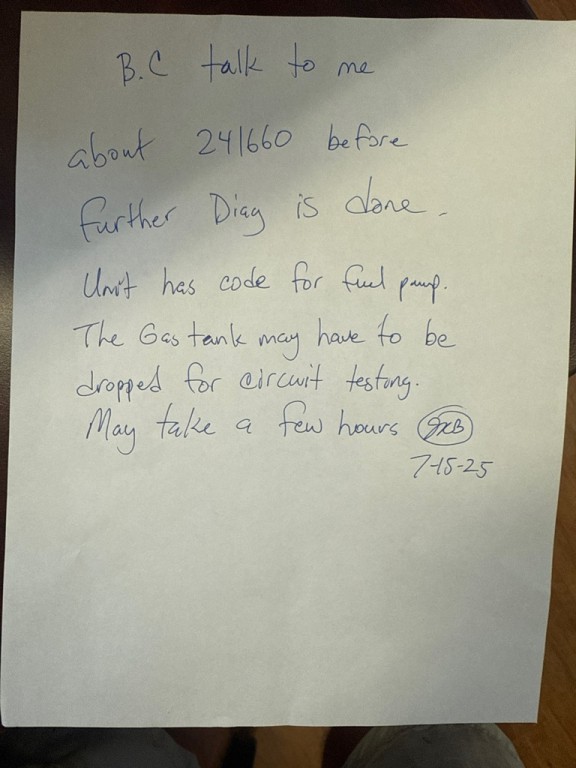 B.C talk to me
about 241660 before
further Diag is done.
Unit has code for fuel pump.
The Gas tank may have to be
dropped for circuit testing.
May take a few hours
7-15-25